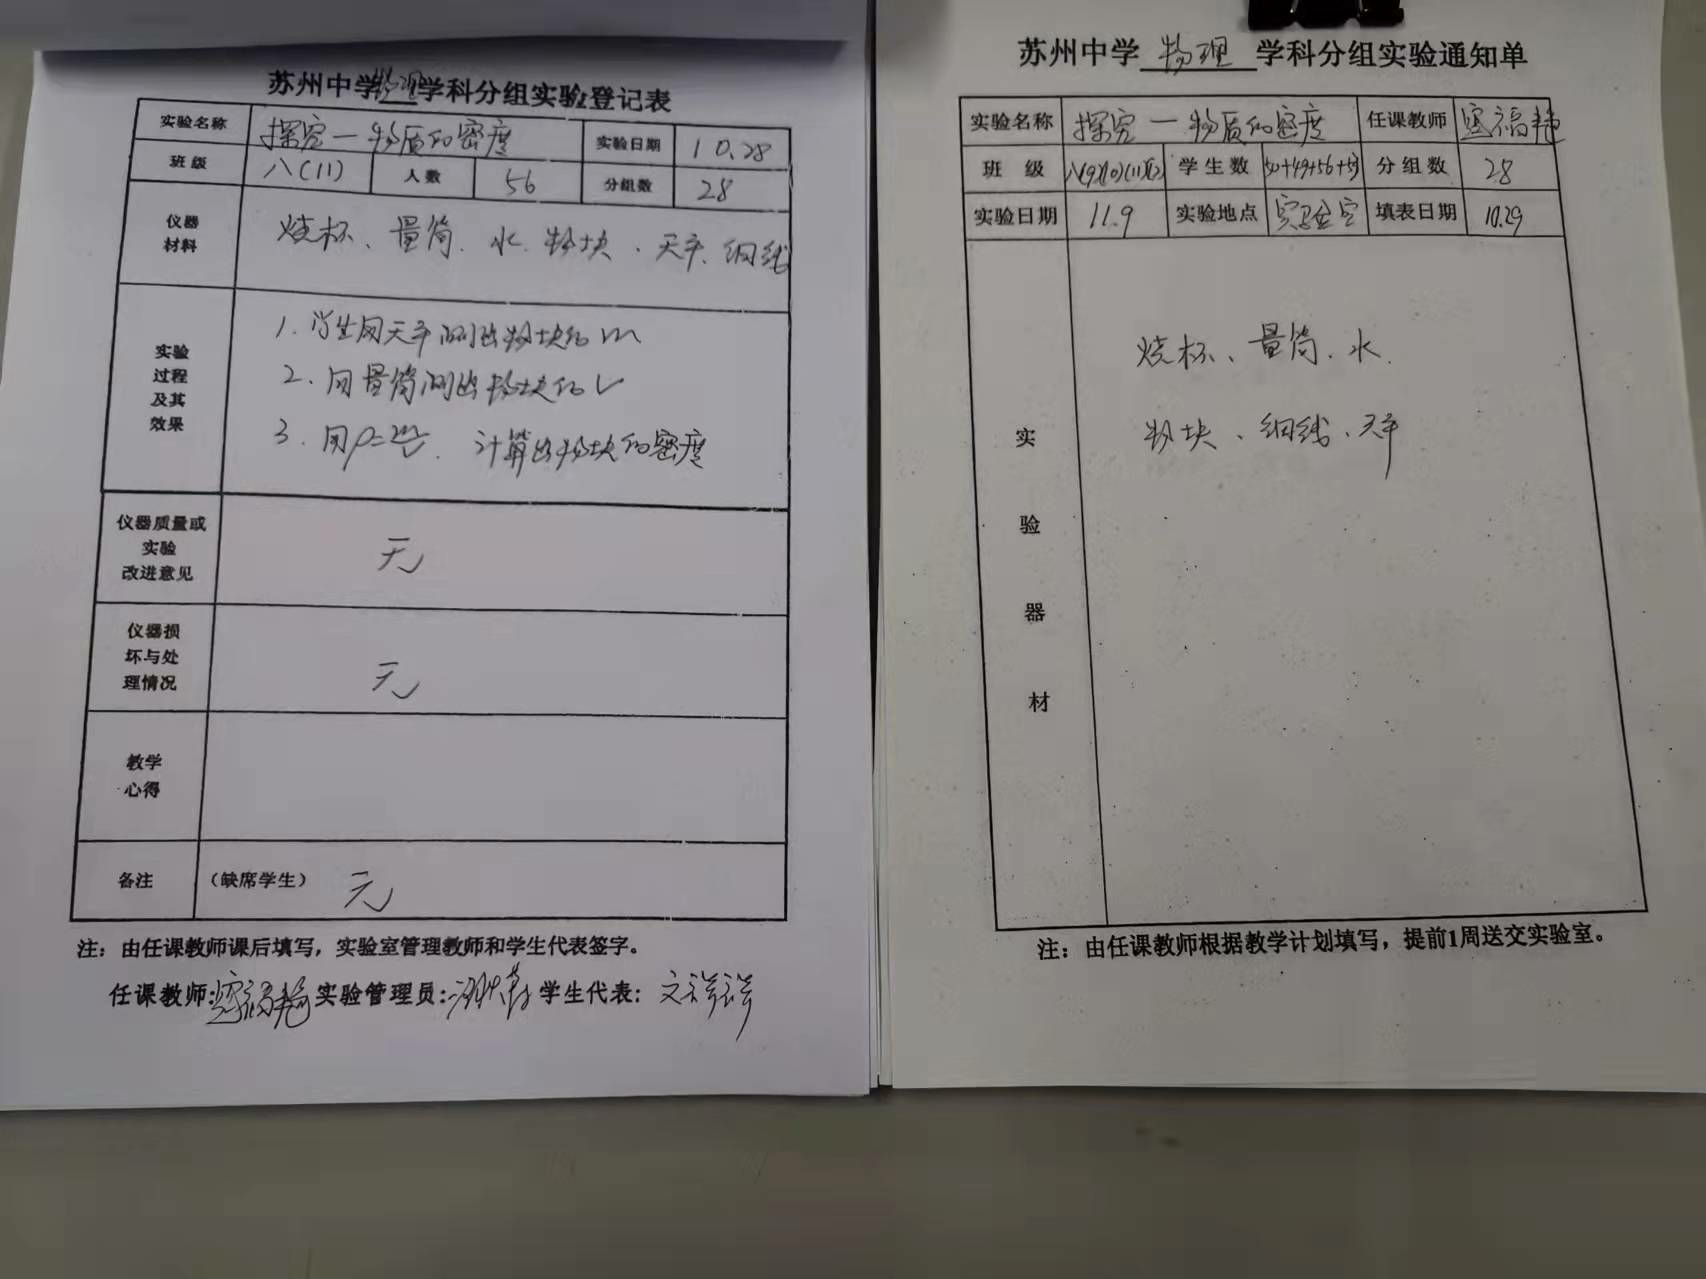 苏州中学物理学科分组实验登记表
实验名称 探究—物质的密度 实验日期 10.28
班级 八(11) 人数 56 分组数 28
仪器
材料
烧杯、量筒、水、物块、天平、细线
实验
过程
及其
效果
1、学生用天平测出物块的m
2、用量筒测出物块的V
3、用ρ=m/v、计算出物块的密度
仪器质量或
实验
改进意见
无
仪器损
坏与处
理情况
无
教学
心得
备注 (缺席学生) 无
注:由任课教师课后填写,实验室管理教师和学生代表签字。
任课教师: 实验管理员: 学生代表:文祥祥
苏州中学 物理 学科分组实验通知单
实验名称 探究—物质的密度 任课教师
班 级 八(9)(10)(11)(12) 学生数 50+49+56+53 分组数 28
实验日期 11.9 实验地点 实验室 填表日期 10.29
实
验
器
材
烧杯、量筒、水、
物块、细线、天平
注:由任课教师根据教学计划填写,提前1周送交实验室。